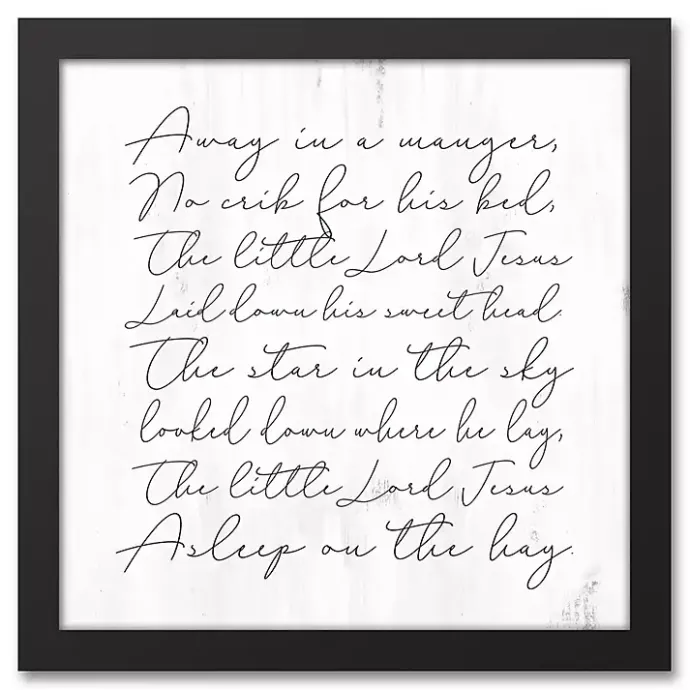 Away in a manger,
No crib for his bed,
The little Lord Jesus
Laid down his sweet head.
The star in the sky
looked down where he lay,
The little Lord Jesus
Asleep on the hay.